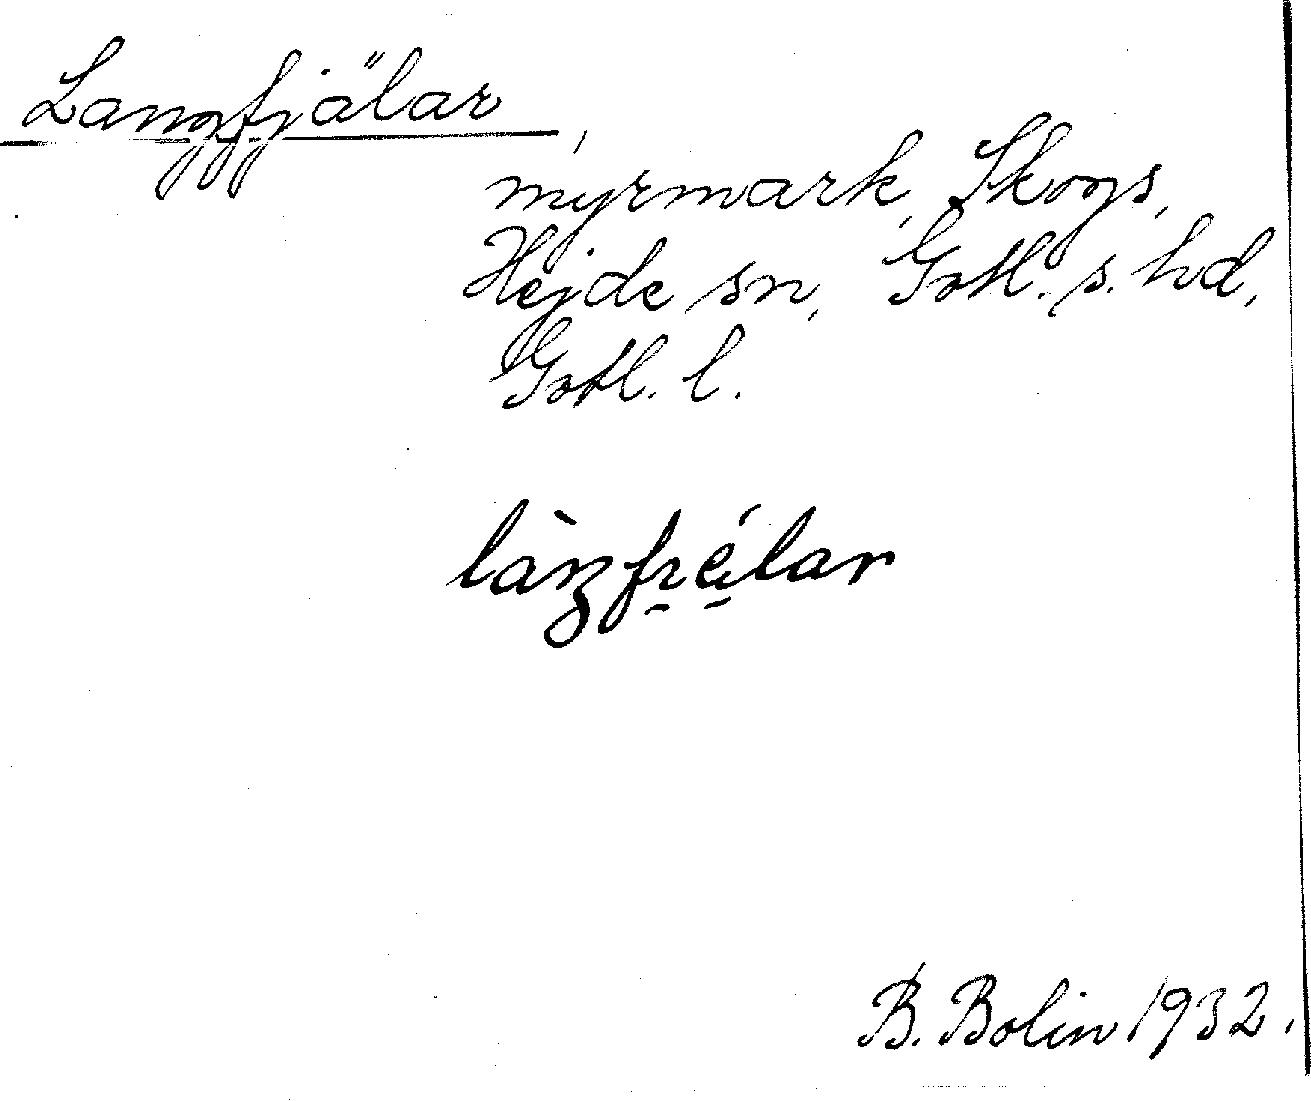 Langfjälar,
myrmark, Skogs,
Hejde sn, Gotl. s. hd,
Gotl. l.
B. Bolin 1932.